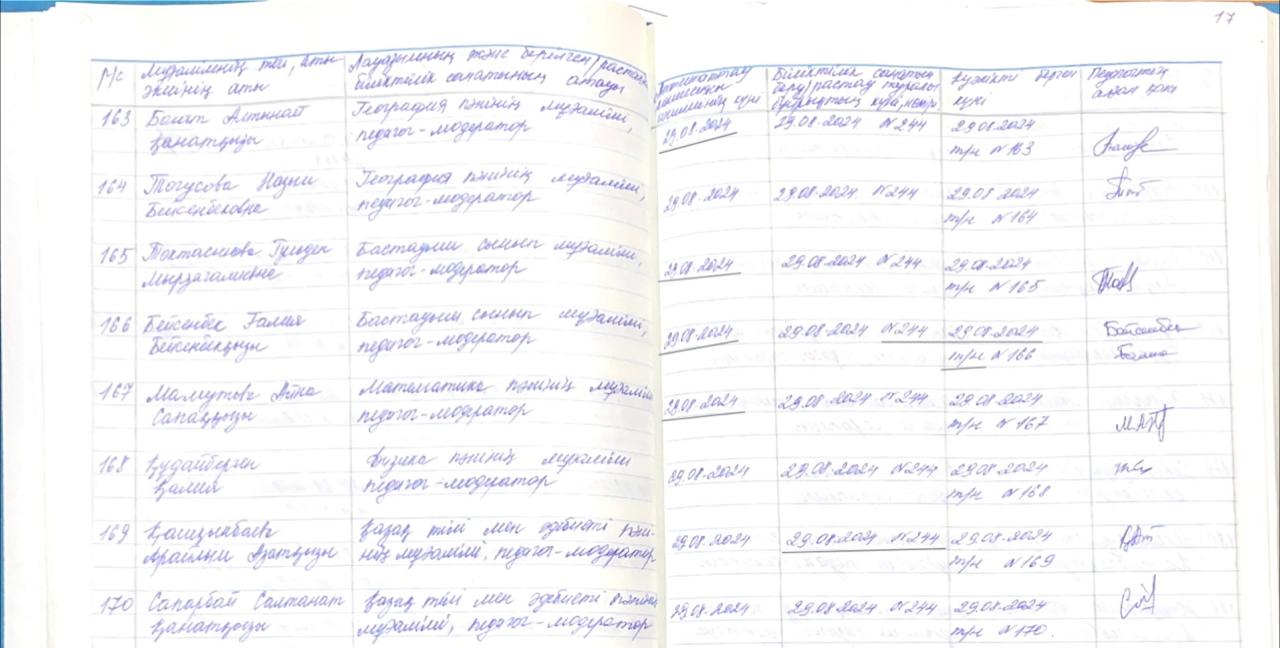 17
р/с
Мұғалімнің тегі, аты
әкесінің аты
Лауазымның және берілген/растал
біліктілік санатының атауы
Аттестаттау
комиссиясы
шешімінің күні
Біліктілік санатын
беру/растау туралы
бұйрықтың күні, нөмірі
Куәлікті берген
күні
Педагогтің
қолы
163
Болат Алтынай
Қанатқызы
География пәнінің мұғалімі,
педагог-модератор
29.08.2024
29.08.2024 №244
29.08.2024
т/н №163
164
Тогусова Назым
Бейсенбековна
География пәнінің мұғалімі,
педагог-модератор
29.08.2024
29.08.2024 №244
29.08.2024
т/н №164
165
Токтасынова Гүлден
Мырзагалиевна
Бастауыш сынып мұғалімі,
педагог-модератор
29.08.2024
29.08.2024 №244
29.08.2024
т/н №165
166
Бейсенбек Ғалия
Бейсенбекқызы
Бастауыш сынып мұғалімі,
педагог-модератор
29.08.2024
29.08.2024 №244
29.08.2024
т/н №166
Бейсенбек
Ғалия
167
Мамутова Айна
Сапаққызы
Математика пәнінің мұғалімі
педагог-модератор
29.08.2024
29.08.2024 №244
29.08.2024
т/н №167
168
Құдайберген
Қалия
Физика пәнінің мұғалімі
педагог-модератор
29.08.2024
29.08.2024 №244
29.08.2024
т/н №168
169
Қашқынбаева
Арайлым Азатқызы
Қазақ тілі мен әдебиеті пәні-
нің мұғалімі, педагог-модератор
29.08.2024
29.08.2024 №244
29.08.2024
т/н №169
170
Сапарбай Салтанат
Қанатқызы
Қазақ тілі мен әдебиеті пәнінің
мұғалімі, педагог-модератор
29.08.2024
29.08.2024 №244
29.08.2024
т/н №170.